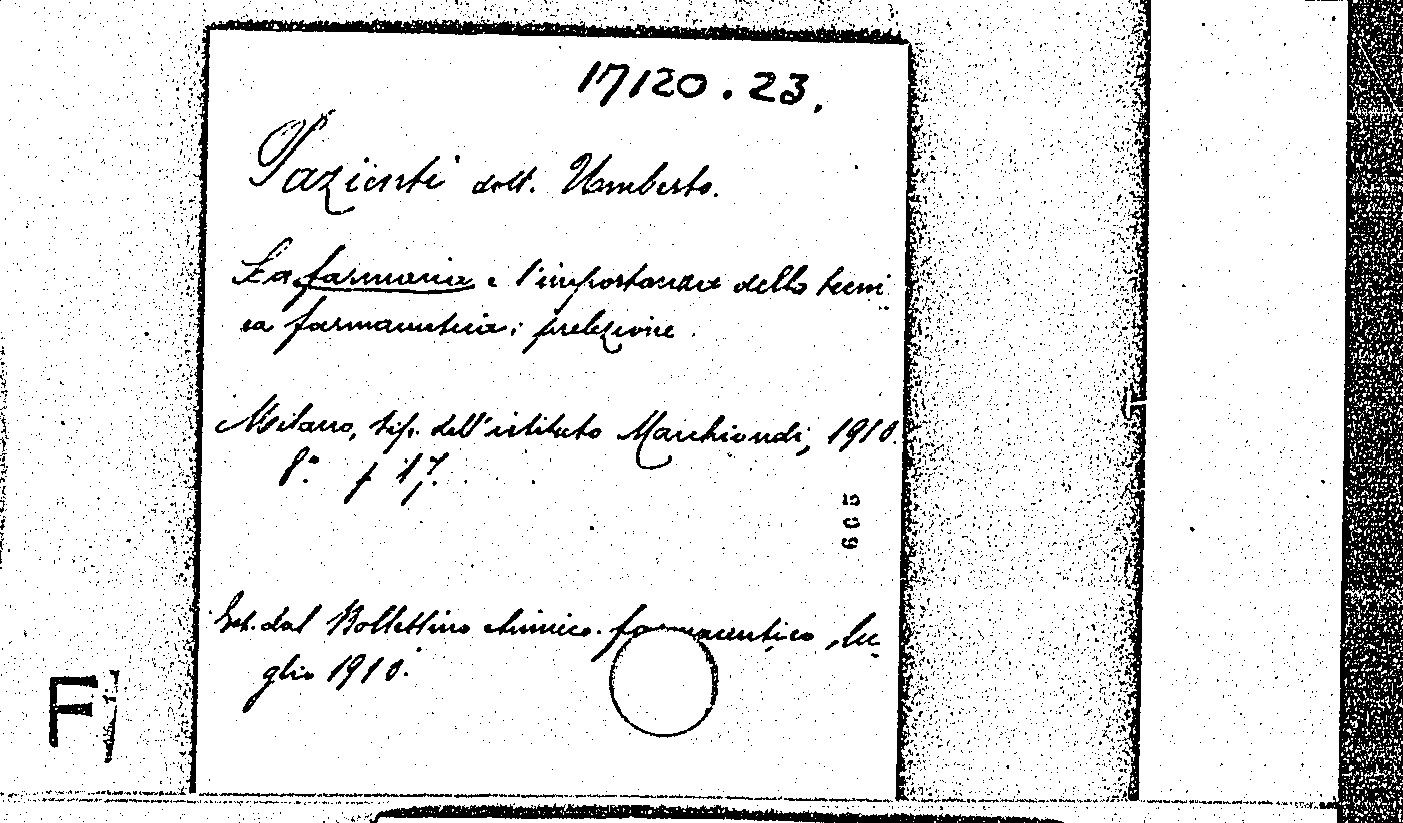 17120.23.
Pazienti dott. Umberto.
La farmacia e l'importanza della tecni
ca farmaceutica; prelezione.
Milano, tip. dell'istituto Marchiondi, 1910.
8.° p 17.
605
Est. dal Bollettino chimico-farmaceutico, lu
glio 1910.
F